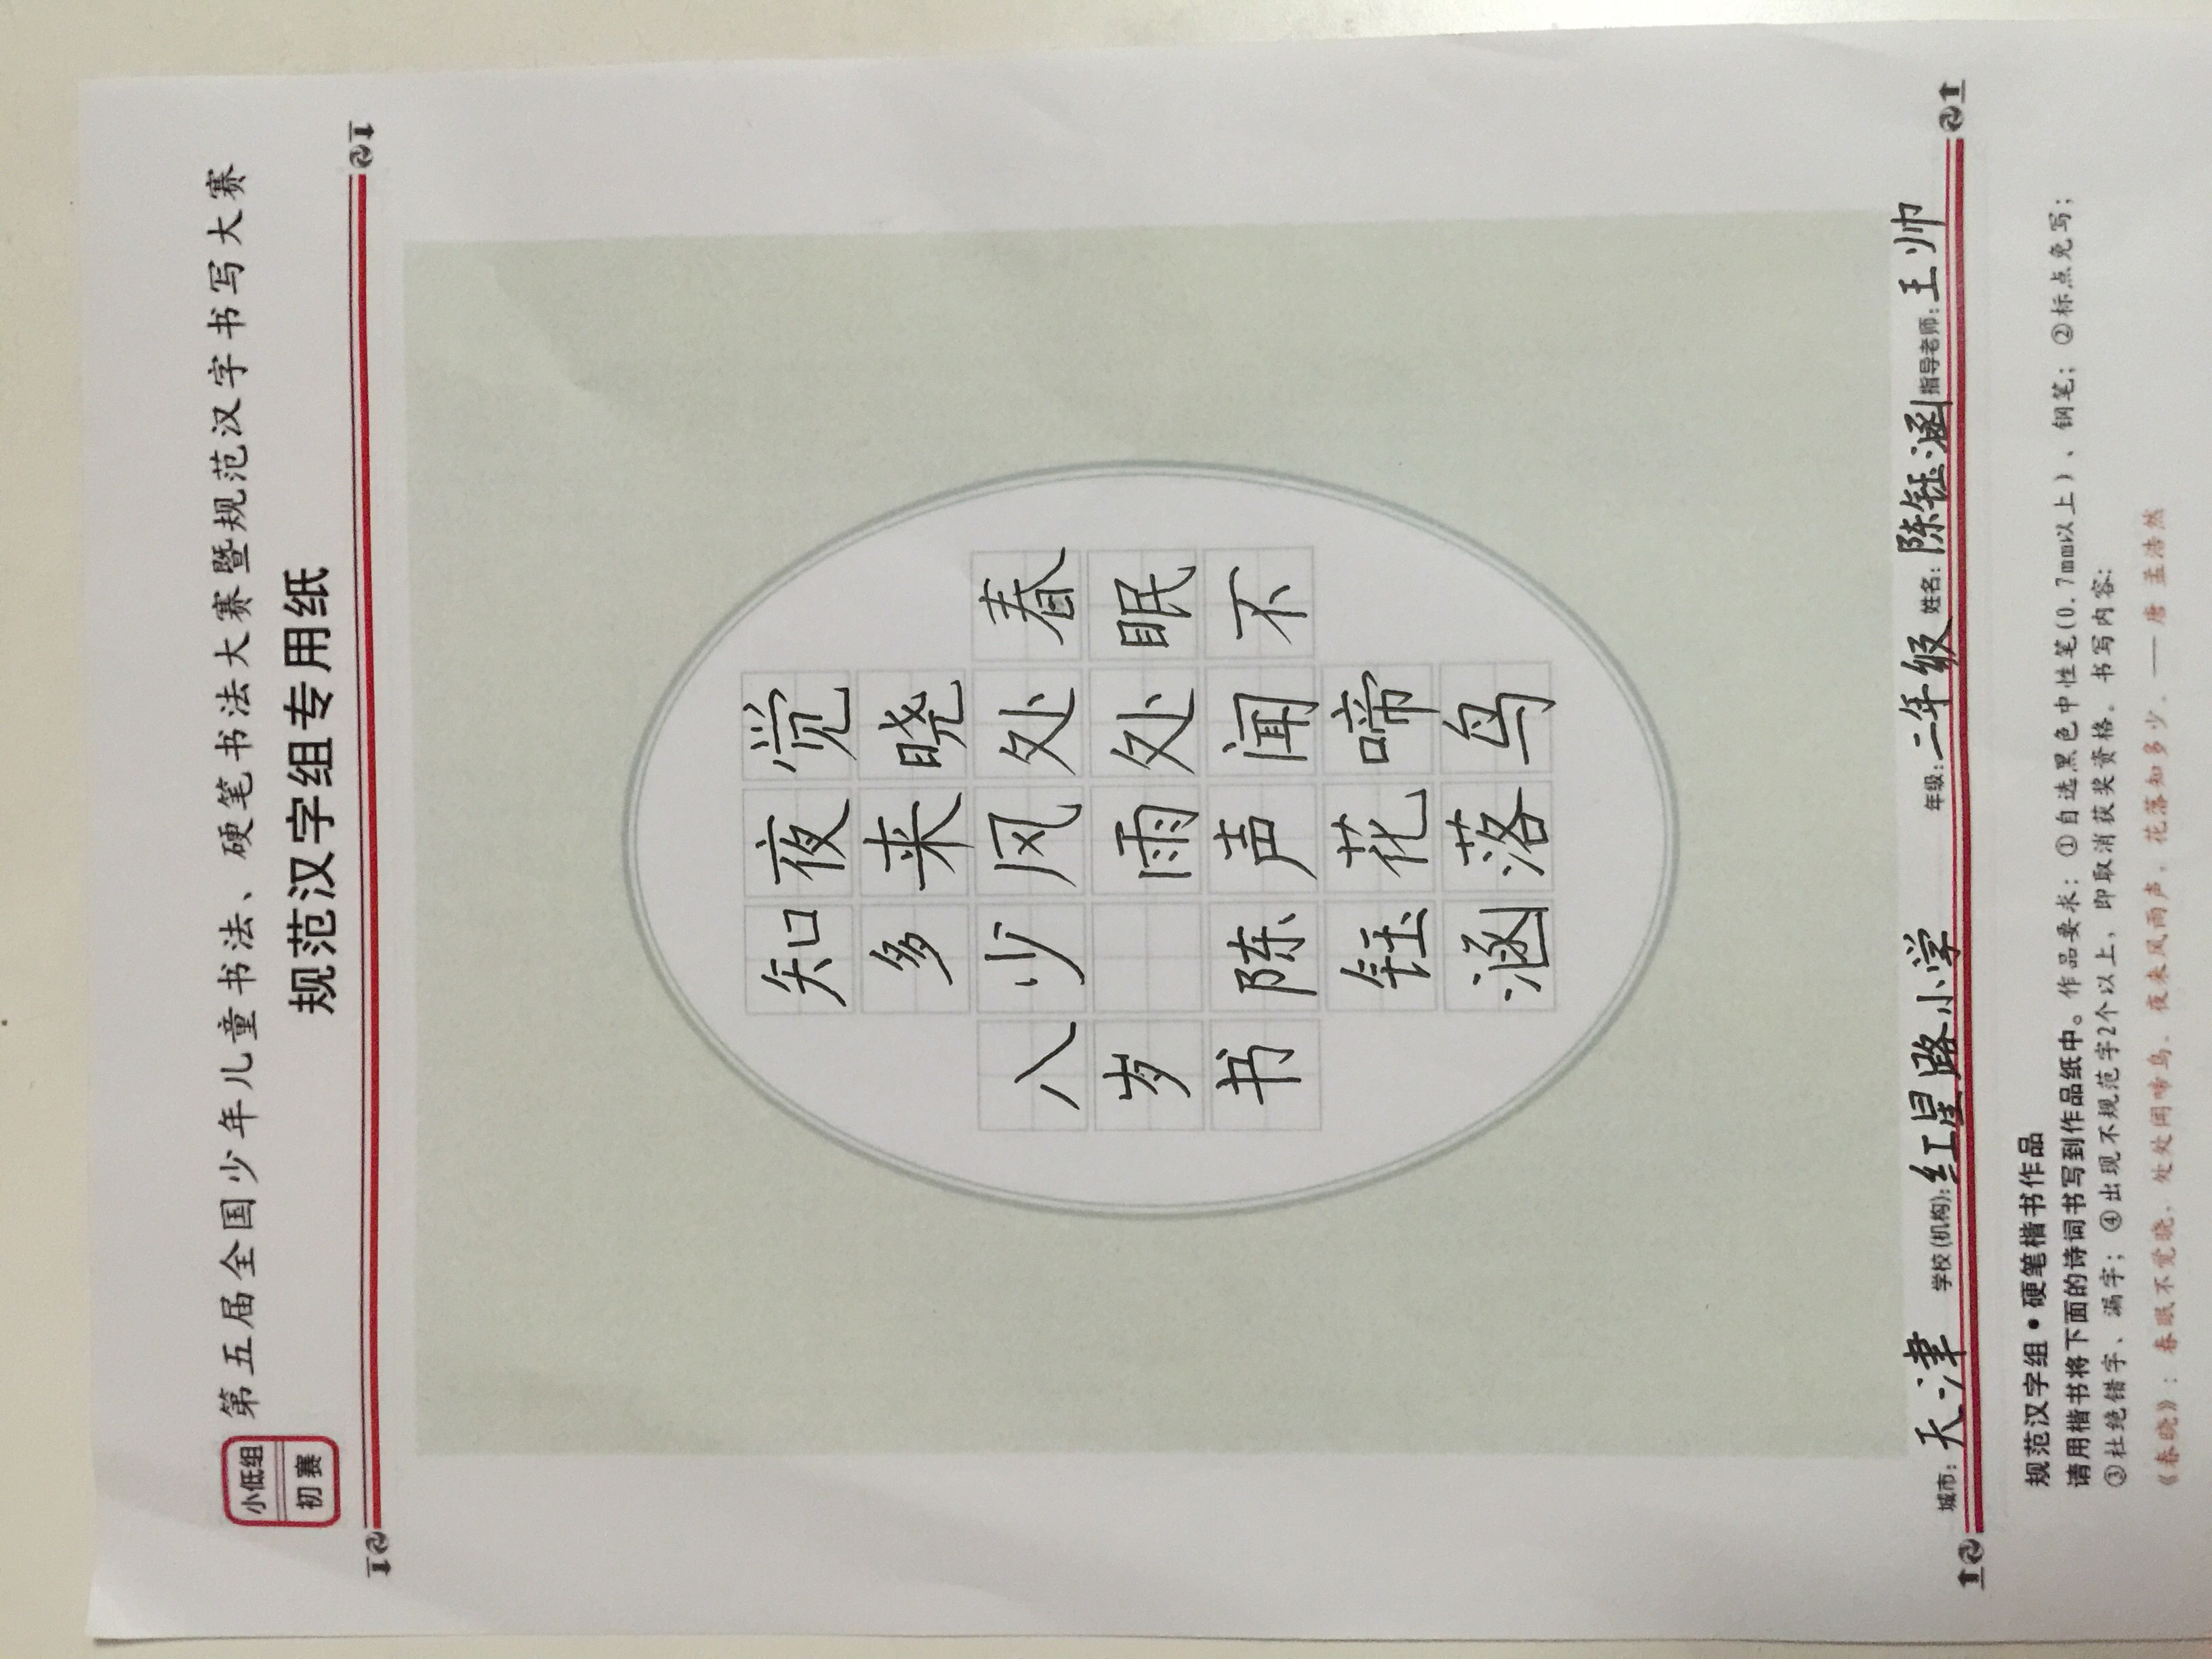 小低组
初赛
第五届全国少年儿童书法、硬笔书法大赛暨规范汉字书写大赛
规范汉字组专用纸
春眠不
觉晓处处闻啼鸟
夜来风雨声花落
知多少 陈钰涵
八岁书
城市：天津 学校(机构)：红星路小学 年级：二年级 姓名：陈钰涵 指导老师：王帅
规范汉字组•硬笔楷书作品
请用楷书将下面的诗词书写到作品纸中。作品要求：①自选黑色中性笔(0.7mm以上)、钢笔；②标点免写；
③杜绝错字、漏字；④出现不规范字2个以上，即取消获奖资格。书写内容：
《春晓》：春眠不觉晓，处处闻啼鸟。夜来风雨声，花落知多少。——唐 孟浩然